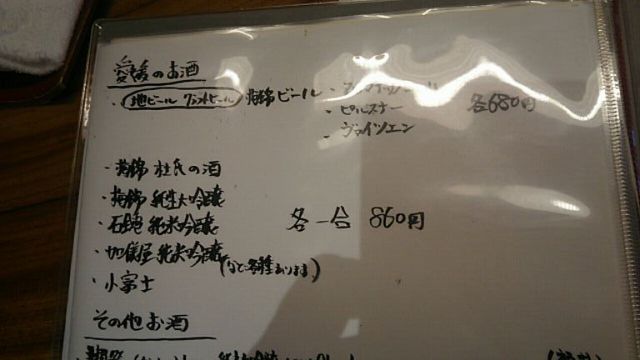 愛媛のお酒
・地ビール クラフトビール 梅錦ビール ・
・ピルスナー 各680円
・ヴァイツェン
・梅錦 杜氏の酒
・梅錦 純生大吟醸
・石鎚 純米吟醸 各一合 860円
・加儀屋 純米吟醸
(など各種あります)
・小富士
その他お酒